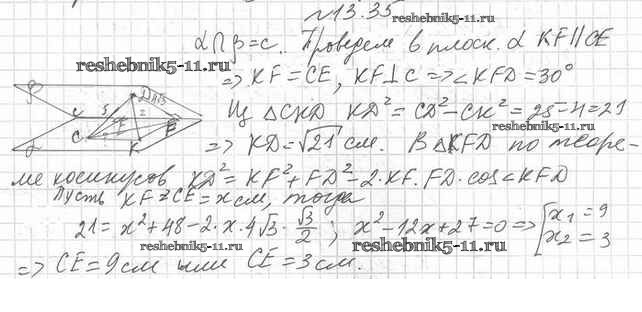 №13.35
reshebnik5-11.ru
α∩β=c. Проведем в плоск. α KF||CE
reshebnik5-11.ru
=> KF=CE, KF⊥c => ∠KFD=30°
Из △CKD KD²=CD²-CK²=25-4=21
=> KD=√21 см. В △KFD по теоре-
ме косинусов KD²=KF²+FD²-2·KF·FD·cos∠KFD
Пусть KF=CE=x см, тогда
21=x²+48-2·x·4√3·√3/2; x²-12x+27=0 => [x₁=9
x₂=3
reshebnik5-11.ru reshebnik5-11.ru
=> CE=9см или CE=3см.